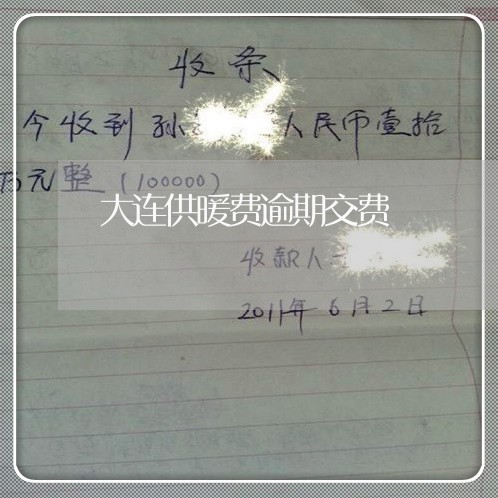 收条
今收到孙 人民币壹拾
万元整(100000)
大连供暖费逾期交费
收款人
2011年6月2日